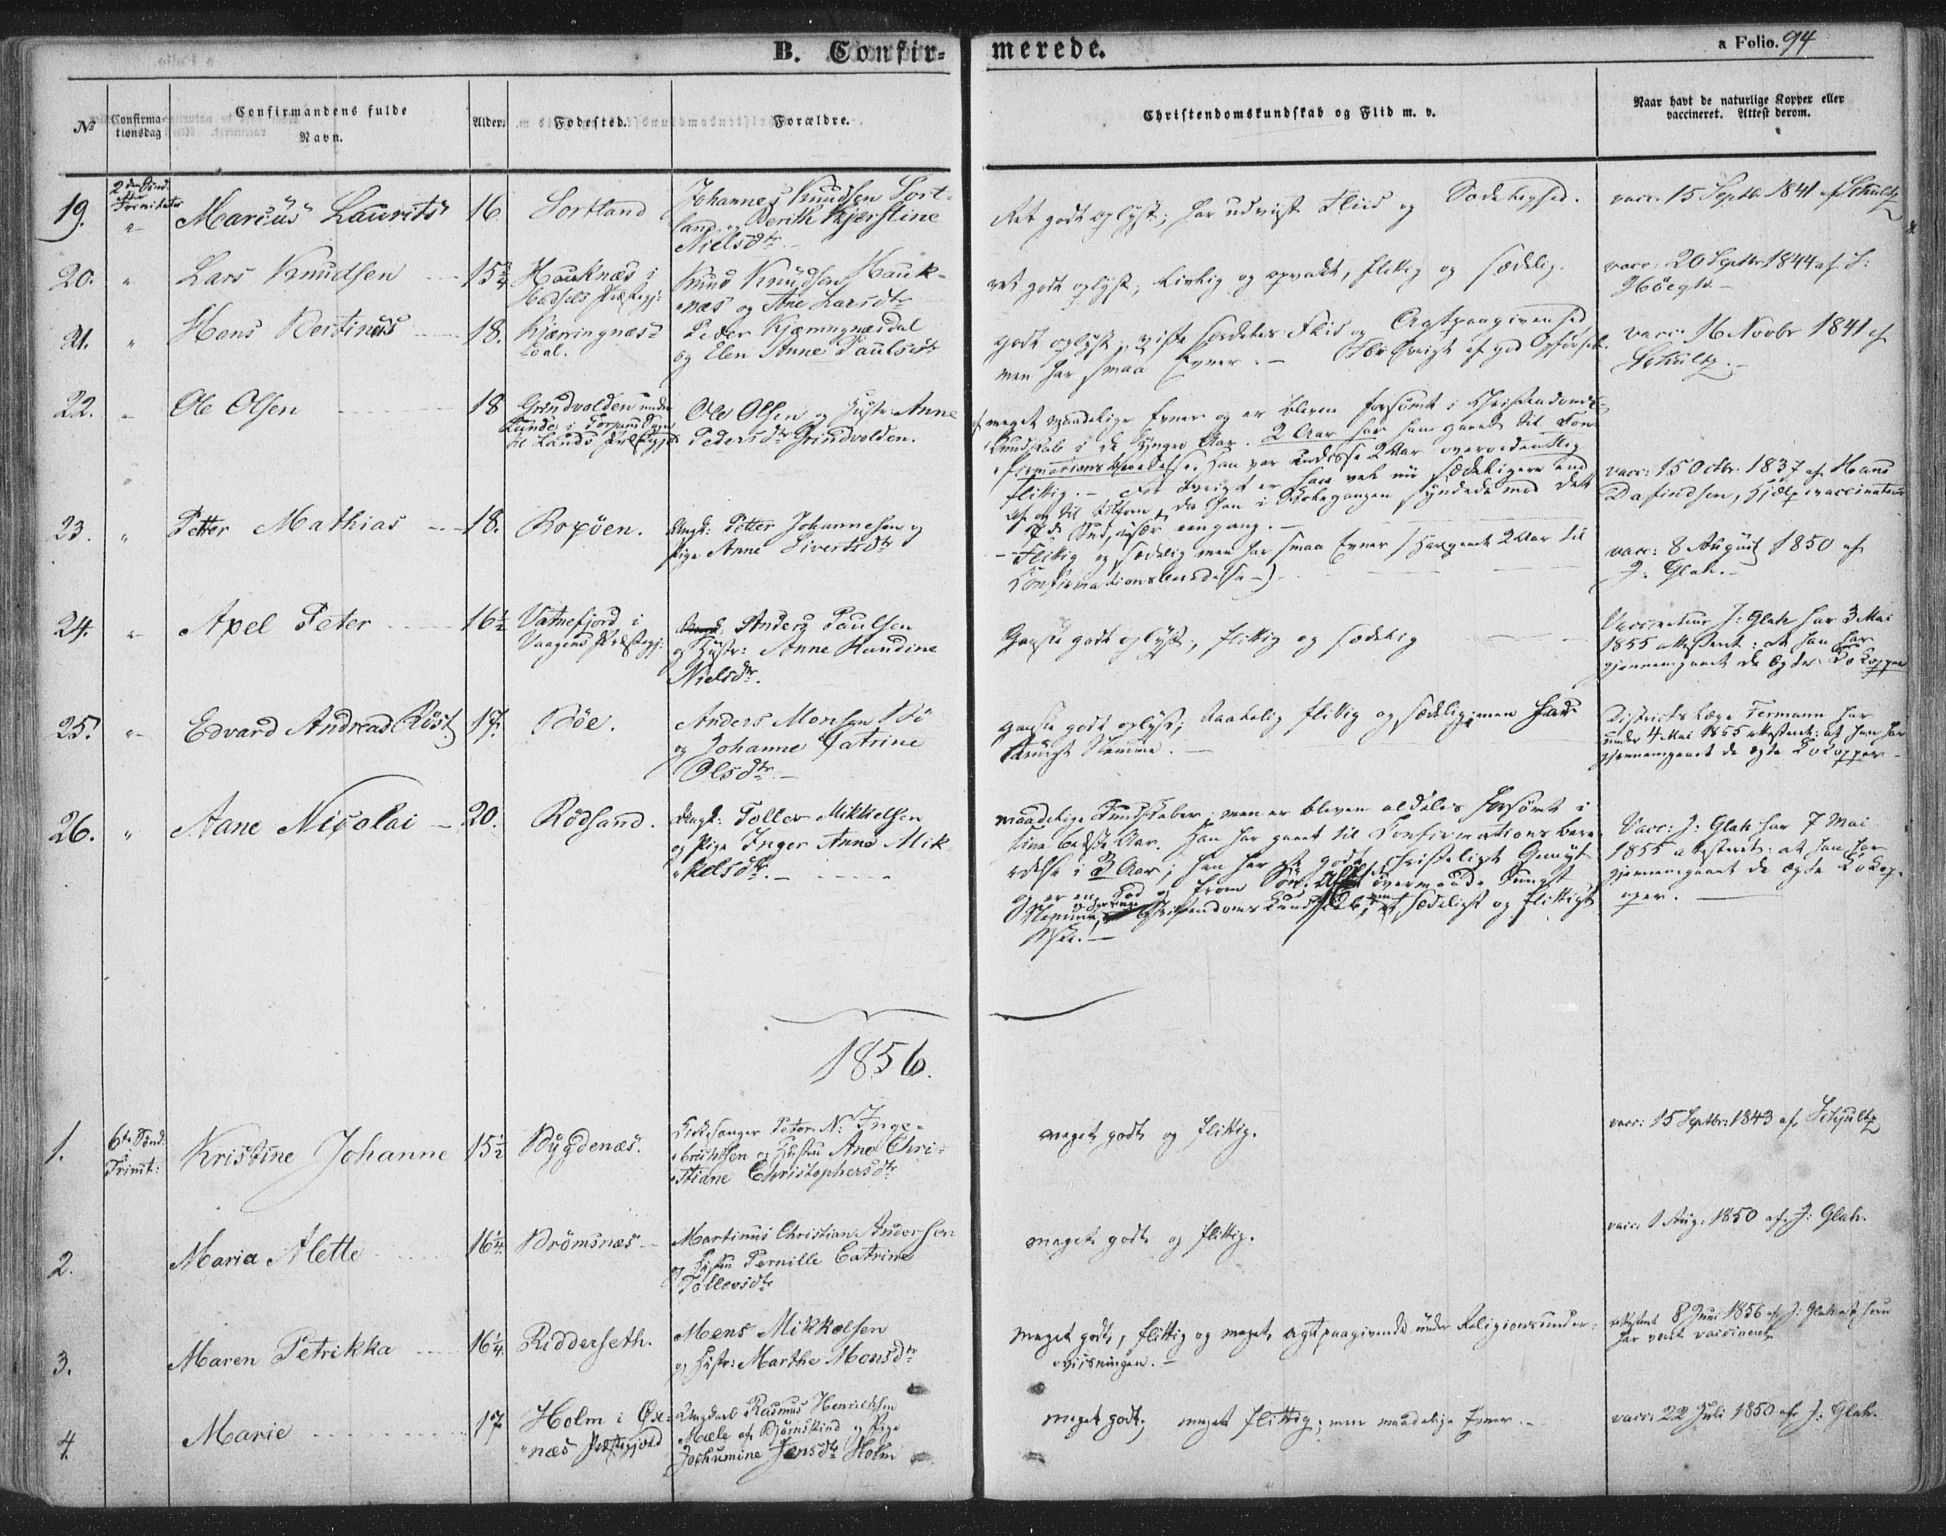 B. Confirmerede.
a Folio. 94
No
Confirmationsdag
Confirmandens fulde Navn.
Alder.
Fødested.
Forældre.
Christendomskundskab og Flid m. v.
Naar havt de naturlige Kopper eller vaccineret. Attest derom.
19.
2den Sønd. efter Trinitatis
Marcus Laurits
16
Sortland
Johannes Knudsen Sort-
land og Berith Kjerstine
Nielsdtr
Ret godt oplyst; har udviist Fliid og Sædelighed.
vacc. 15 Septbr 1841 af Schultz
20.
Lars Knudsen
15 3/4
Hauknæs i
Hadsels Præstegj:
Knud Knudsen Hauk-
næs og Ane Larsdtr
ret godt oplyst; livlig og opvakt, flittig og sædelig.
vacc: 20 Septbr 1844 af
21.
Hans Bertinus
18.
Kjæringnæs-
dal.
Peder Kjæringnæsdal
og Elen Anne Paulsdtr
godt oplyst, viste særdeles Fliid og Agtpaagivenhed
men har smaa Evner. – Forøvrigt af god Opførsel.
vacc: 16 Novbr 1841 af
Schultz.
22.
Ole Olsen
18
Grindvolden under
Ole Olsen og Hustr: Anne
Pedersdtr Grindvolden.
meget maadelige Evner og er bleven forsømt i Christendoms-
kundskab i de yngre Aar. 2 Aar har han gaaet til Con-
firmationsberedelse. Han var i disse 2 Aar overordentlig
flittig. –
vacc: 15 Octbr. 1837 af Hans
Dafindsen, Hjelpevaccinateur
23.
Petter Mathias
18.
Roxøen.
Ungk: Petter Johannesen og
Pige Anne Sivertsdtr
– Flittig og sædelig men har smaa Evner / Har gaaet 2 Aar til
Confirmationsberedelse –).
vacc: 8 August 1850 af
J. Glah. –
24.
Axel Peter
16 1/2
Vatnefjord i
Vaagens Præstegj:
Anders Paulsen
og Hustr: Anne Haudine
Nielsdtr.
Ganske godt oplyst, flittig og sædelig
Vaccinateur J: Glah har 3 Mai
1855 attesteret: at han har
gjennemgaaet de ægte Kokopper
25.
Edvard Andreas Røst
17.
Bøe.
Anders Monsen Bø
og Johanne Catrine
Olsdtr. –
ganske godt oplyst; flittig og sædelig; men har
Stemme. –
Districtslæge Termann har
under 4 Mai 1855 attesteret: at han har
gjennemgaaet de ægte Kokopper –
26.
Aane Nicolai
20.
Rødsand.
Ungk: Tollev Mikkelsen
og Pige Inger Anne Mik-
kelsdtr. –
maadelige Kundskaber; men er bleven aldeles forsømt i
sine bedste Aar. Han har gaaet til Confirmationsbere-
delse i 3 Aar; han har et godt christeligt Gemyt
Vacc: J: Glah har 7 Mai
1855 attesteret: at han har
gjennemgaaet de ægte Kokop-
per. –
1856.
1.
6te Sønd:
Trinit:
Kristine Johanne
15 1/2
Bygdenæs.
Kirkesanger Peter N: Inge-
brichtsen og Hustru Ane Chri-
stiane Christophersdtr
meget godt og flittig.
vacc: 15 Septbr. 1843 af Schultz
2.
Maria Alette
16 1/4
Brømsnæs –
Martinus Christian Andersen
og Hustru Pernille Catrine
Tollevsdtr
meget godt og flittig.
vacc. 1 Aug: 1850 af J: Glah.
3.
Maren Petrikka
16 1/4
Ridderseth.
Mons Mikkelsen
og Hustr: Marthe Monsdtr
Meget godt, flittig og meget agtpaagivende under Religionsunder-
viisningen. –
attesteret 8 Juni 1856 af J: Glah at hun
har været vaccineret
4.
Marie
17
Holm i Øx-
næs Præstegjeld
Ungkarl Rasmus Henriksen
Mæle af Bjørnskind og Pige
Jochumine Jensdtr Holm
meget godt; meget flittig; men maadelige Evner. –
vacc: 22 Juli 1850 af J: Glah.